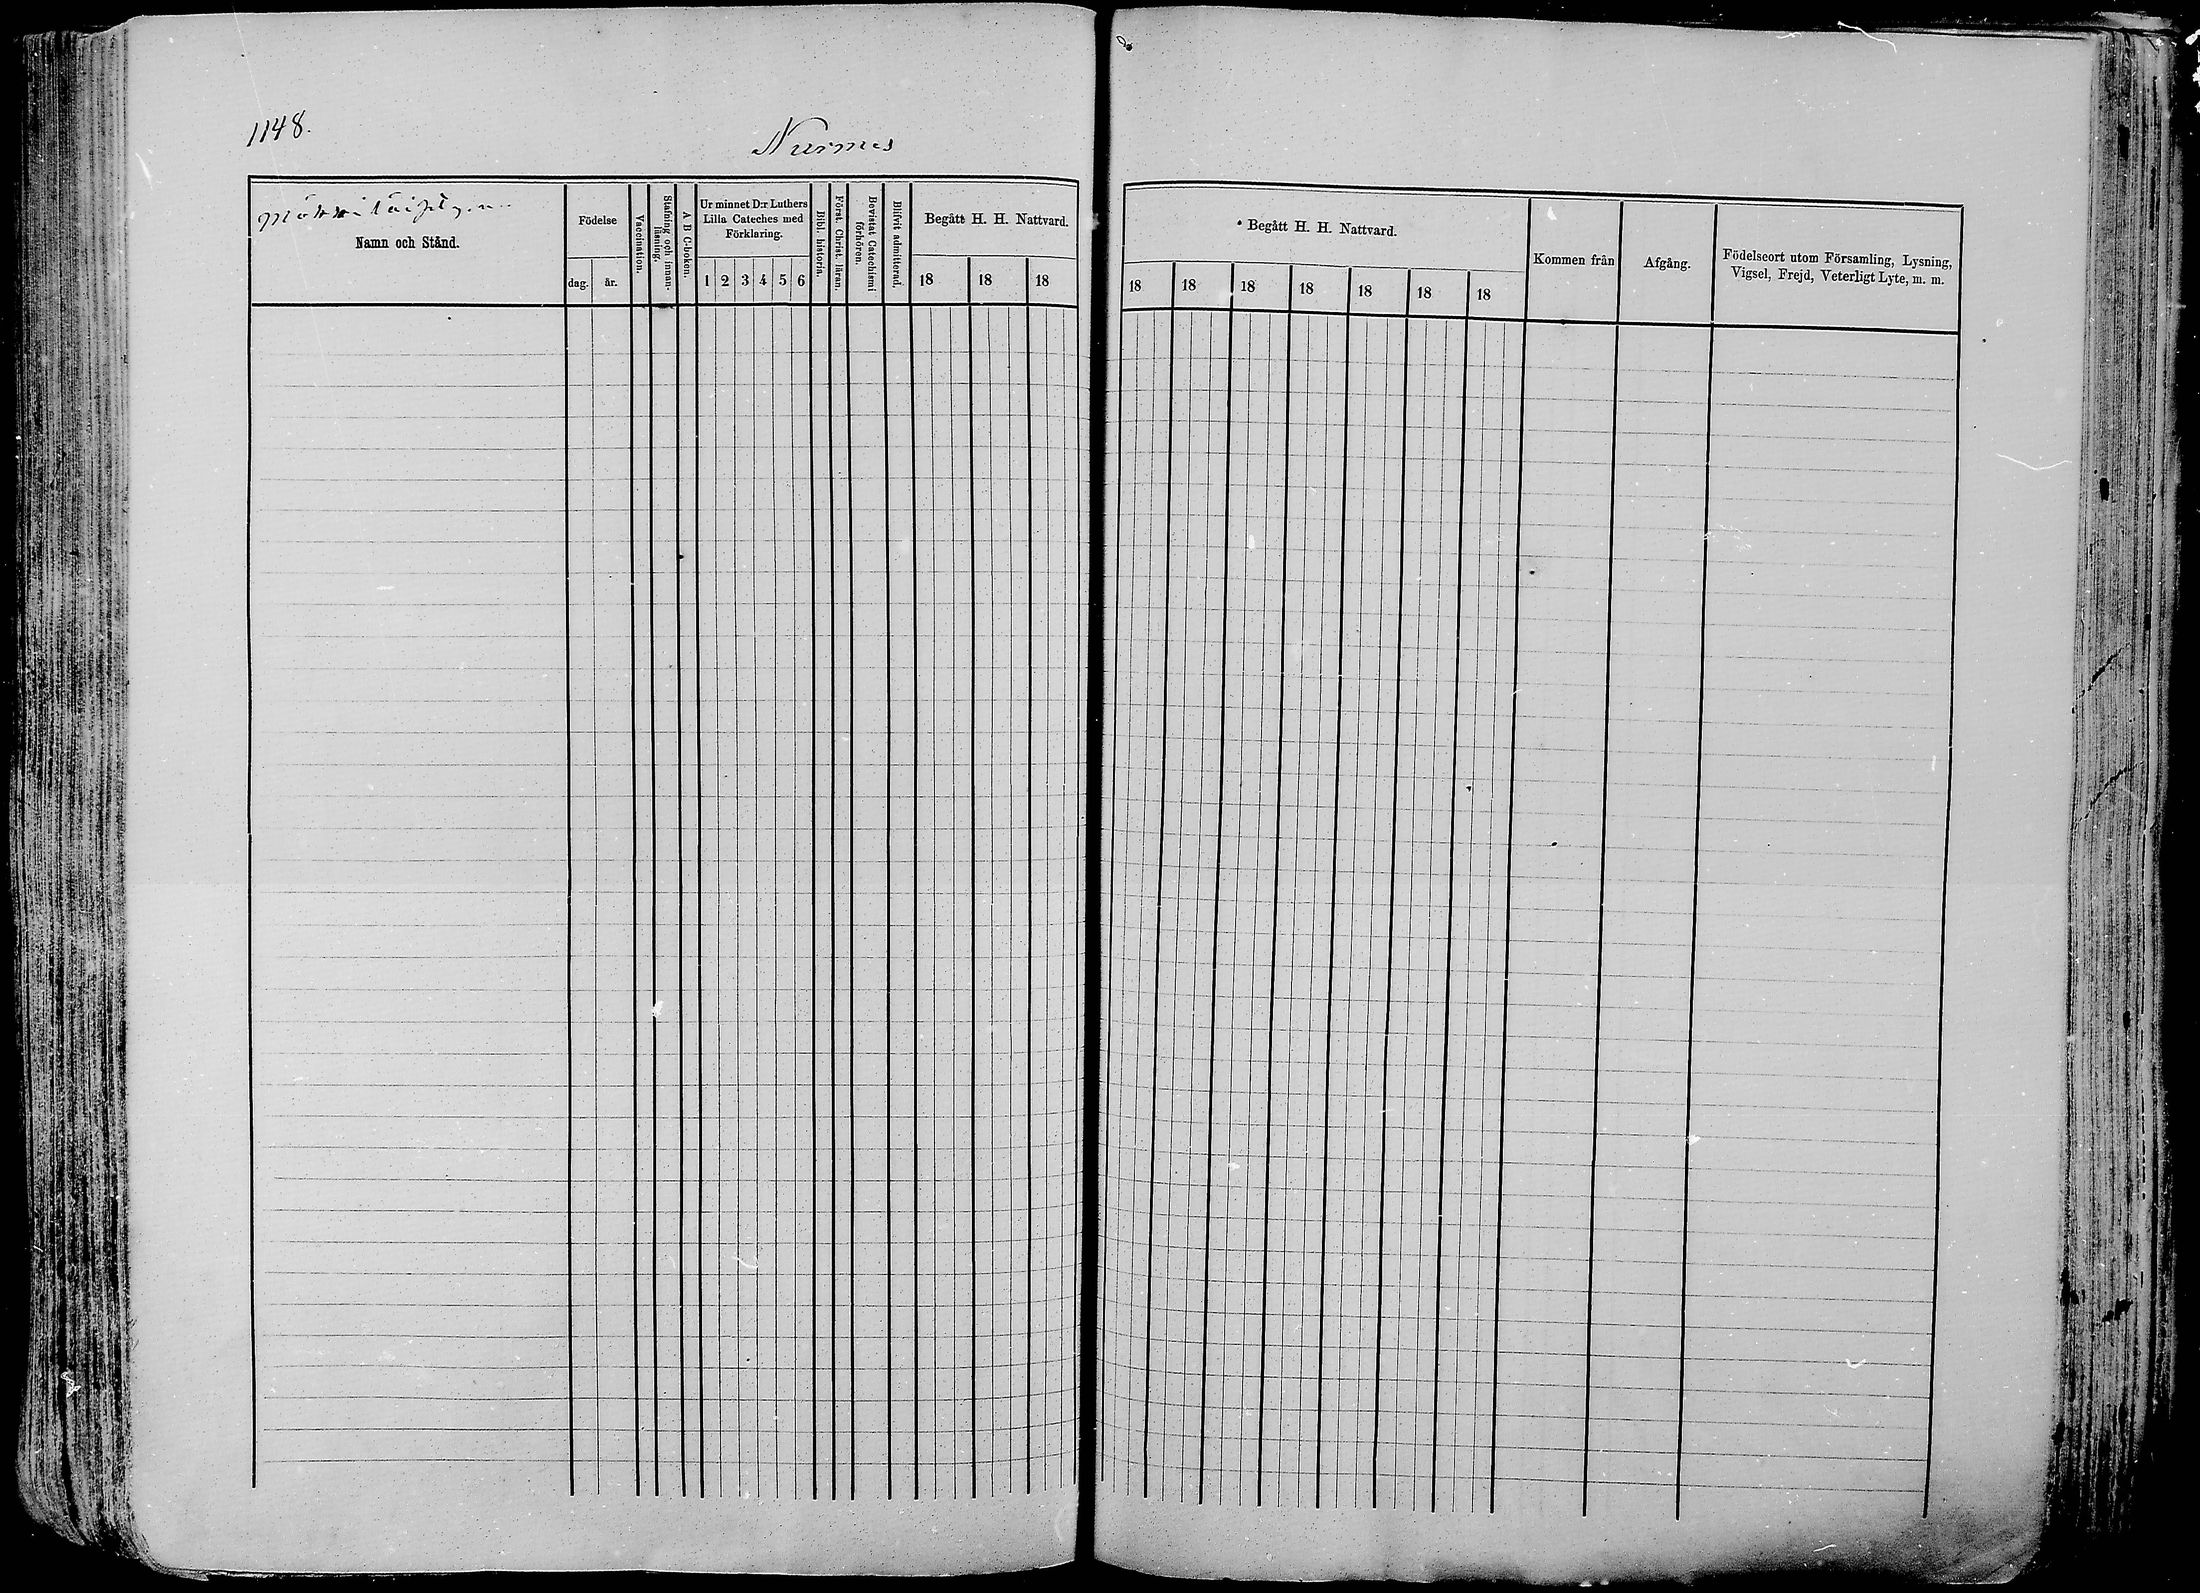 1148.
Nurmes
Namn och Stånd.
Födelse
dag.
år.
Vaccination.
Stafning och innan-
läsning.
A B C-boken.
Ur minnet D:r Luthers
Lilla Cateches med
Förklaring.
1 2 3 4 5 6
Bibl. historia.
Först. Christ. läran.
Bevistat Catechismi
förhören.
Blifvit admitterad.
Begått H. H. Nattvard.
18 18 18
Begått H. H. Nattvard.
18 18 18 18 18 18 18
Kommen från
Afgång.
Födelseort utom Församling, Lysning,
Vigsel, Frejd, Veterligt Lyte, m. m.